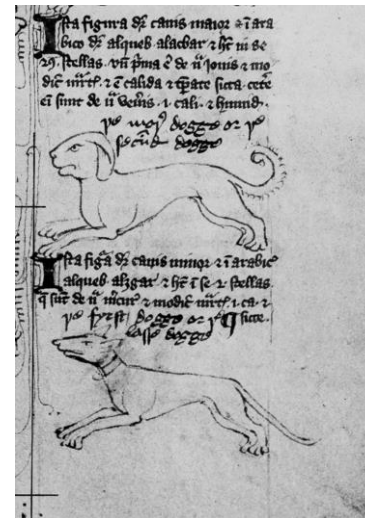 Ista figura dr canis maior & i ara
bico dr alqueb alacbar & ht in se
29. stellas. vn pma e de n Jouis & mo
dic mrtl. & e calida & tpate sicca. cete
ei sunt de n veneris . i cali . & humid.
þe mor dogge or þe
secud dogge
Ista figa dr canis minor & i arabic
alqueb alzgar & ht i se 2 stellas
q sut de n mcur & modic mrtl. i ca. &
þe fyrst dogge or þe sicce.
lasse dogge